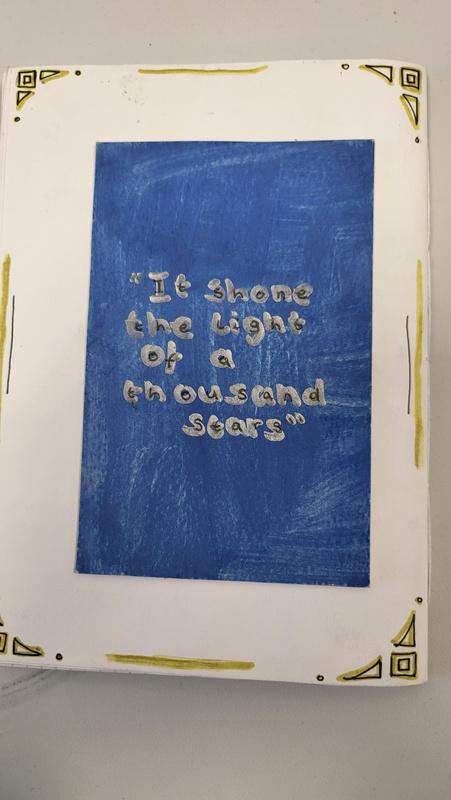 "It shone
the light
of a
thousand
stars"